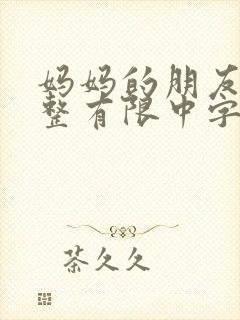 妈妈的朋友
整有限中字
茶久久